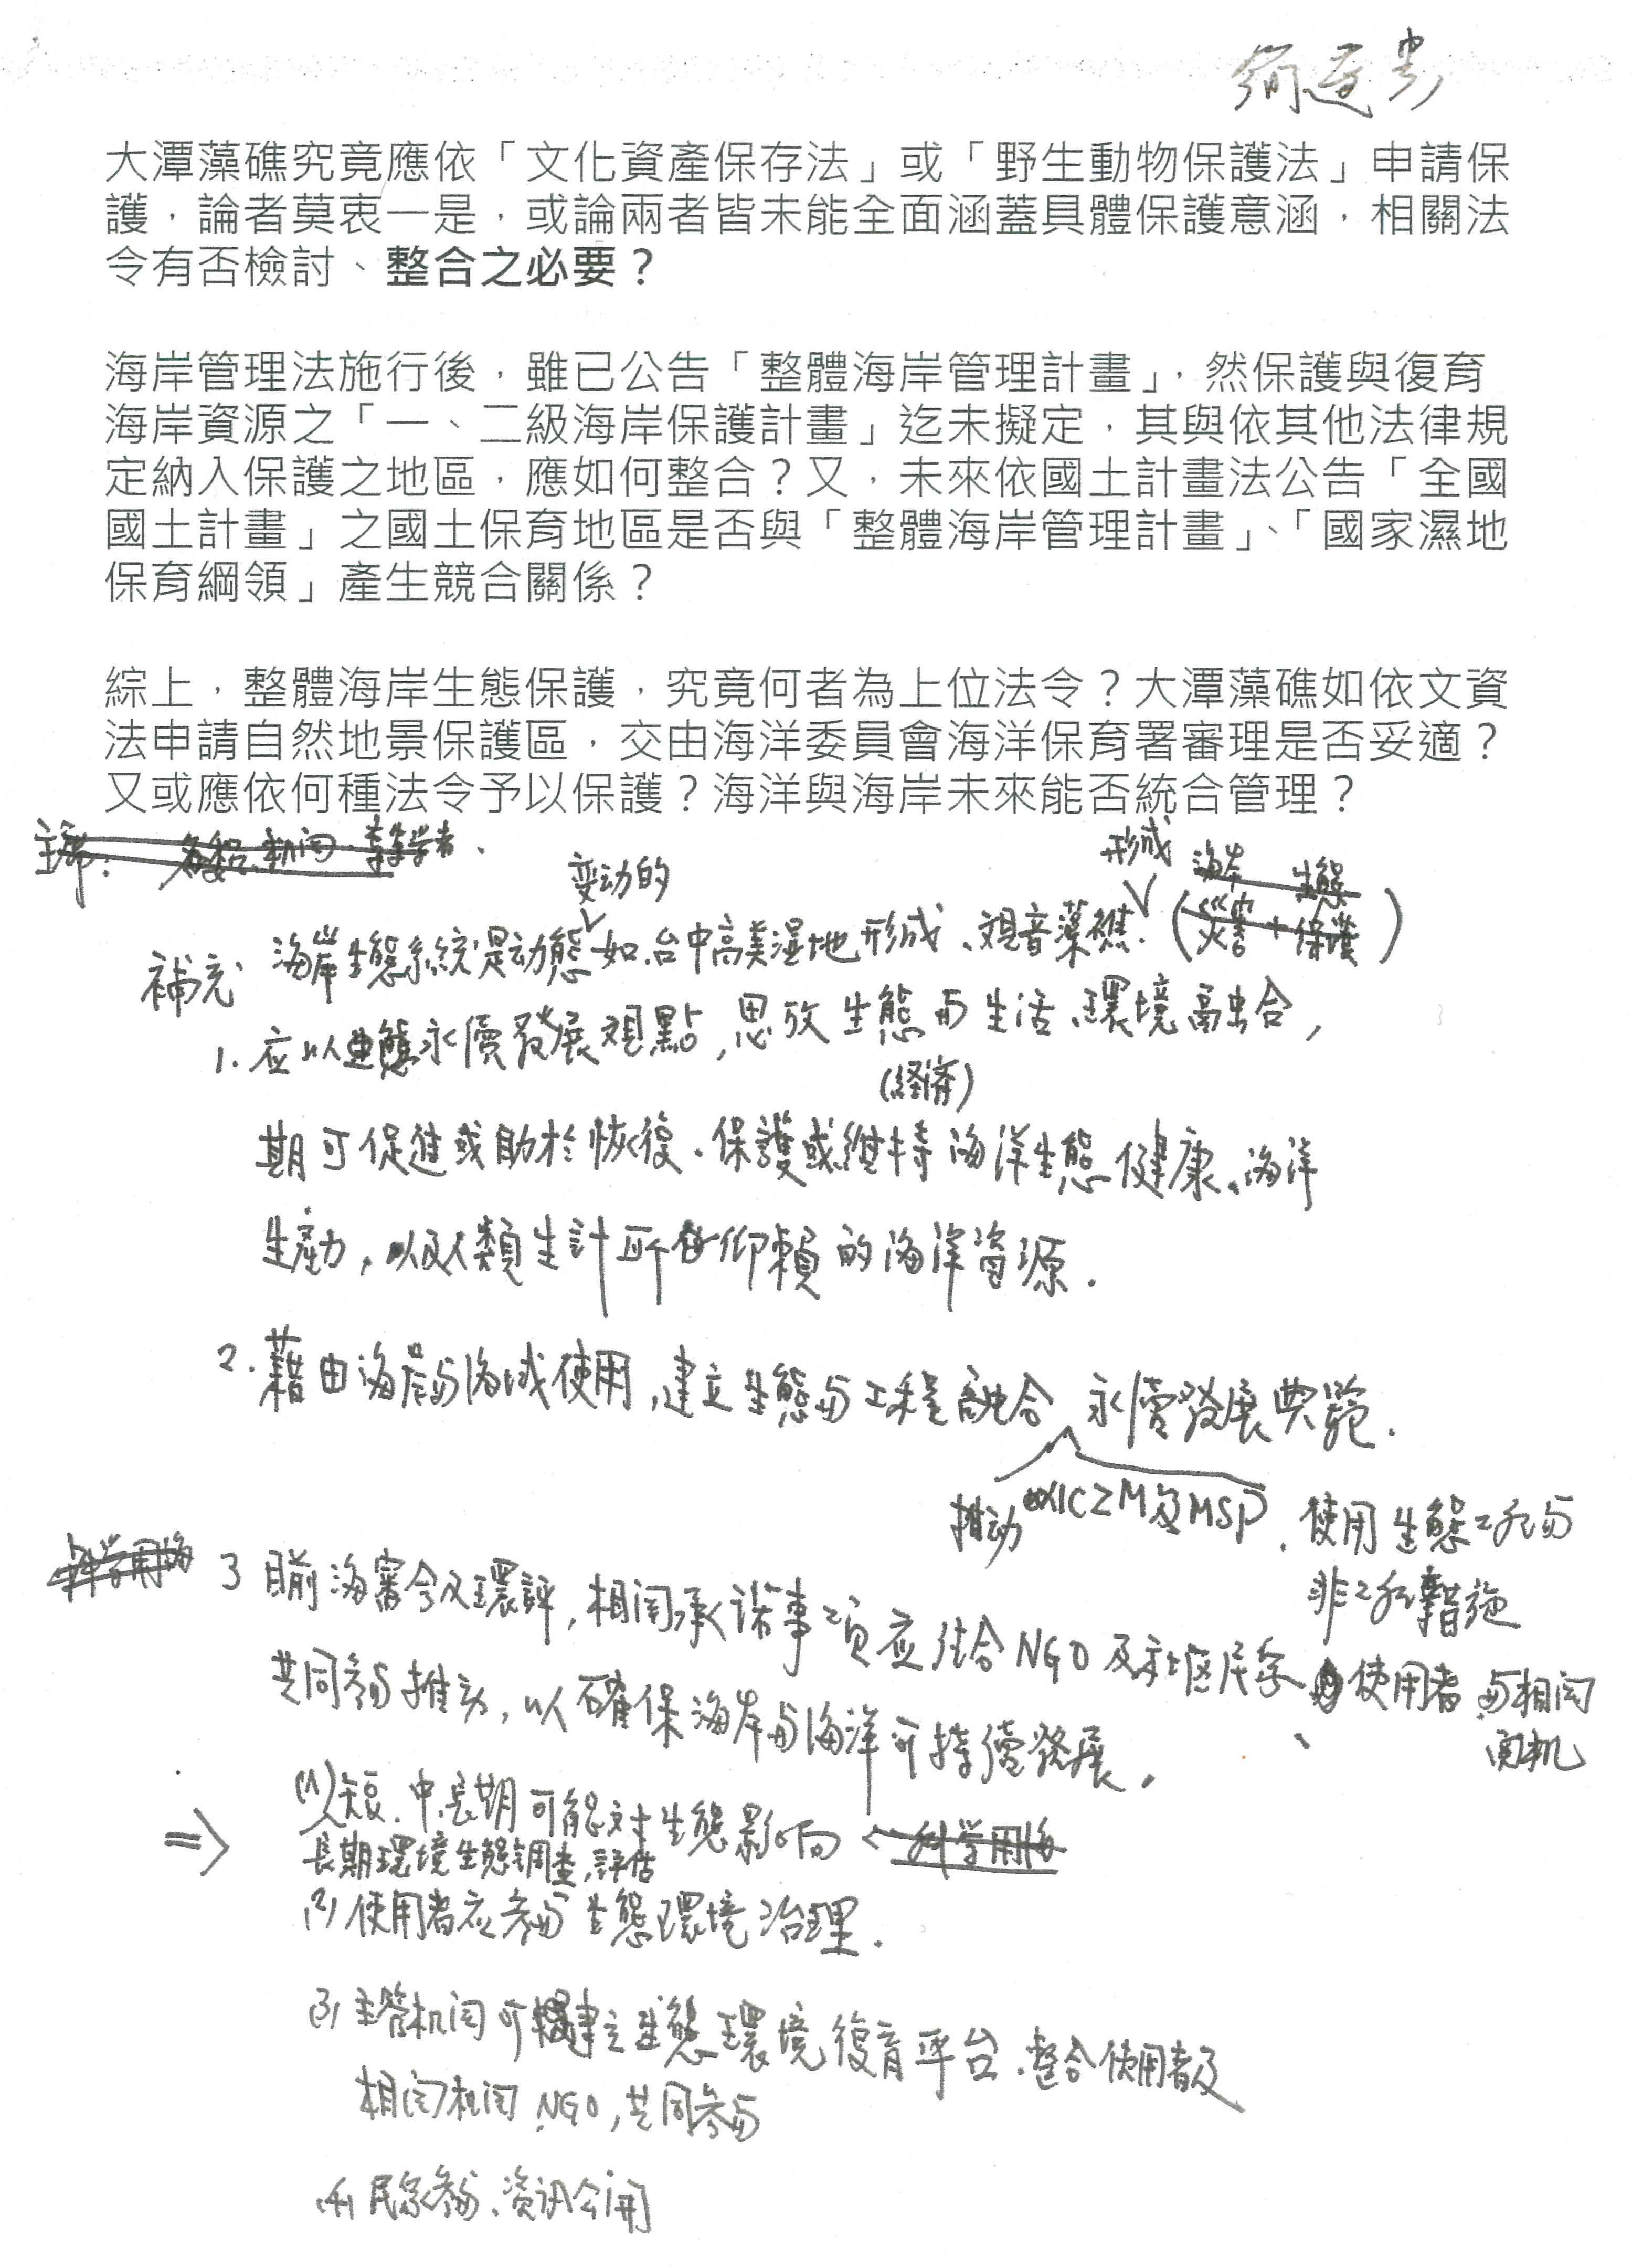 簡連貴
大潭藻礁究竟應依「文化資產保存法」或「野生動物保護法」申請保
護，論者莫衷一是，或論兩者皆未能全面涵蓋具體保護意涵，相關法
令有否檢討、整合之必要？
海岸管理法施行後，雖已公告「整體海岸管理計畫」，然保護與復育
海岸資源之「一、二級海岸保護計畫」迄未擬定，其與依其他法律規
定納入保護之地區，應如何整合？又，未來依國土計畫法公告「全國
國土計畫」之國土保育地區是否與「整體海岸管理計畫」、「國家濕地
保育綱領」產生競合關係？
綜上，整體海岸生態保護，究竟何者為上位法令？大潭藻礁如依文資
法申請自然地景保護區，交由海洋委員會海洋保育署審理是否妥適？
又或應依何種法令予以保護？海洋與海岸未來能否統合管理？
变动的
形成
海岸 生態
補充 海岸生態系統是动態 如.台中高美湿地形成、观音藻礁.(災害+保護)
1. 应以生態永續發展观點,思攷生態与生活、環境融合,
(経済)
期可促進或助於恢復、保護或維持海洋生態健康、海洋
生產力,以及人類生計所仰賴的海洋資源.
2. 藉由海岸与海域使用,建立生態与工程融合 永續發展典範.
推动 以ICZM及MSP、使用生態工程与
非工程措施
3 目前海審会及環評,相関承諾事項应結合NGO及社区民众 使用者 与相関
共同參与推动,以確保海岸与海洋可持續發展.
机
⇒ (1)短.中.長期可能对生態影响 科学用海
長期環境生態調查,評估
(2)使用者应參与生態環境治理.
(3)主管机関可建立生態環境復育平台.整合使用者及
相関机関.NGO,共同參与
(4)民众參与、資訊公開